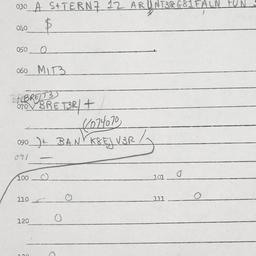 030 A S+TERN7 12 ARUNT3RG81FALN FUN
040 $
050 0
060 MIT3
BRE(T3)
070 BRET3R/ +
(/074070)
090 )+ BAN K8EJ V3R /
091 —
100 0 101 0
110 0 111 0
120 0